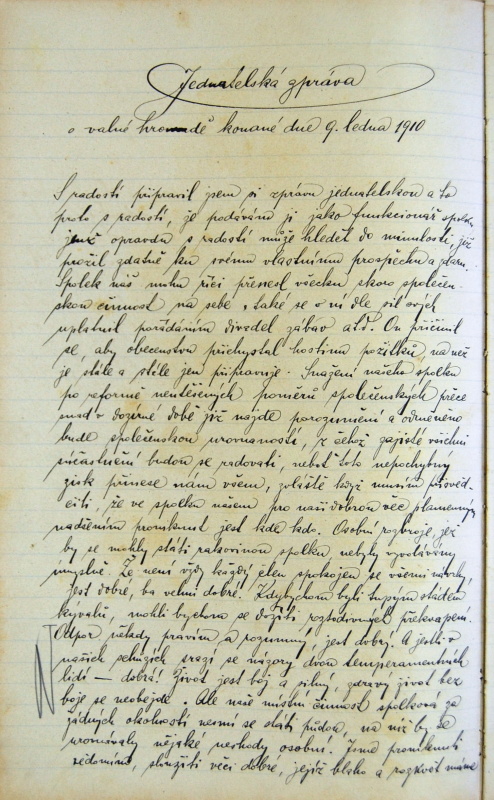 Jednatelská zpráva
o valné hromadě konané dne 9. ledna 1910
S radostí připravil jsem si zprávu jednatelskou a to
proto s radostí, že podávám ji jako funkcionář spolku
jenž opravdu s radostí může hleděti do minulosti, již
prožil zdatně ku svému vlastnímu prospěchu a zdaru.
Spolek náš mohu říci přenesl všecku skoro společen-
skou činnost na sebe, také se o ni dle sil svých
uplatnil pořádáním divadel zábav atd. On přičinil
se, aby obecenstvu přichystal hostinu požitků, na něž
je stále a stále jen připravuje. Snažení našeho spolku
po reformě neutěšených poměrů společenských přece
snad v dozírné době již najde porozumění a odměněno
bude společenskou urovnaností, z čehož zajisté všichni
súčastnění budou se radovati, neboť toto nepochybný
zisk přinese nám všem, zvláště když musím přisvěd-
čiti, že ve spolku našem pro naši dobrou věc plamenným
nadšením proniknut jest kde kdo. Osobní rozbroje, jež
by se mohly státi rakovinou spolku, nebyly vyvolávány
úmyslně. Že není vždy každý člen spokojen se všemi návrhy,
jest dobré, ba velmi dobré. Kdybychom byli tupým stádem
kyvalů, mohli bychom se dožíti roztodivných překvapení.
Odpor, někdy pravím a rozumný, jest dobrý. A jestli v
našich schůzích srazí se názory dvou temperamentních
lidí — dobrá! Život jest boj a silný, zdravý život bez
boje se neobejde. Ale naše místní činnost spolková za
žádných okolností nesmí se státi půdou, na níž by se
urovnávaly nějaké neshody osobní. Jsme proniknuti
vědomím, sloužiti věci dobré, jejíž blaho a rozkvět máme